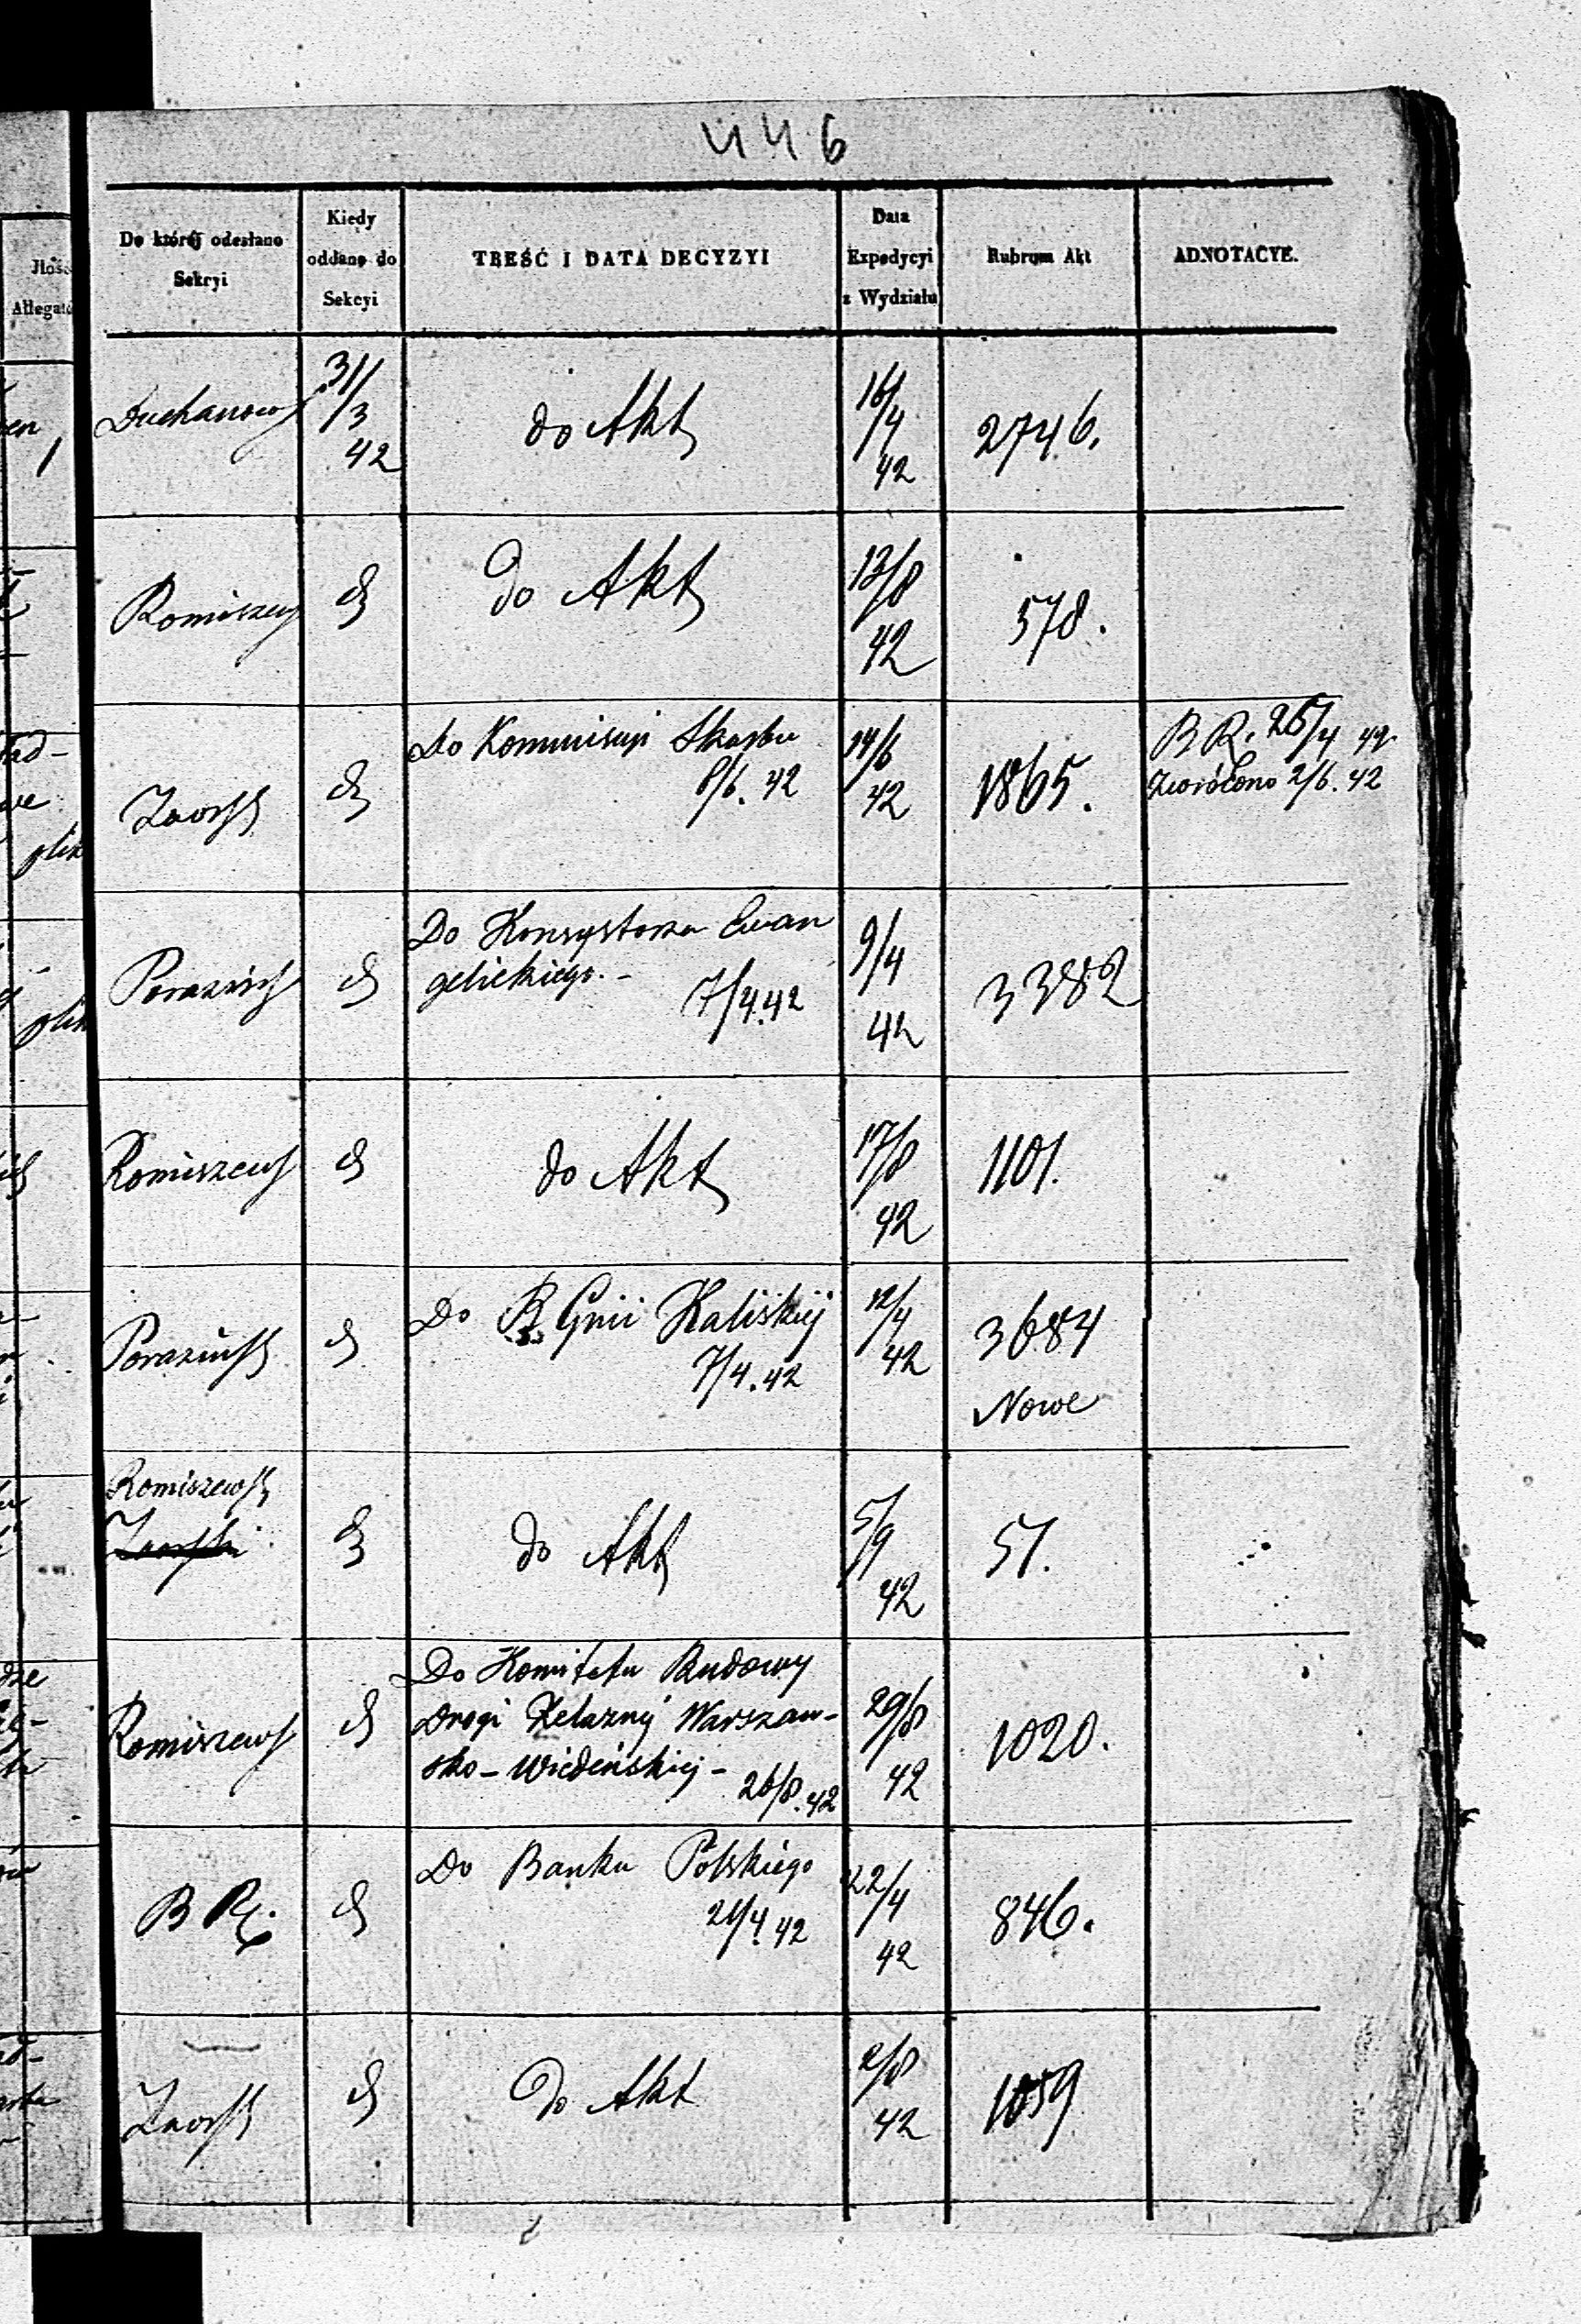 446
Jłość
Allegató
Do którój odesłano
Sekcyi
Kiedy
oddano do
Sekcyi
TREŚĆ I DATA DECYZYI
Data
Expedycyi
z Wydziału
Rubrum Akt
ADNOTACYE.
Duchanow
31/3
42
do Akt
16/4
42
2746.
Romiszew
do Akt
13/8
42
578.
Do Kommissyi Skarbu
8/6. 42
14/6
42
1865.
B R. 26/4 42
Zwrócono 2/6. 42
plik
Porazińs
Do Konsystorza Ewan
gelickiego. -
7/4.42
9/4
42
3382
plik
Romiszews
do Akt
17/8
42
1101.
Porazińs
Do R. Gnii Kaliskiej
7/4.42
12/4
42
3684
Nowe
Romiszews
do Akt
5/9
42
51.
Romiszews
Do Komitetu Budowy
Drogi Żelaznéj Warszaw-
sko-Wiedeńskiej -
26/8.42
29/8
42
1020.
B R.
Do Banku Polskiego
21/4.42
22/4
42
846.
do Akt
2/8
42
1059